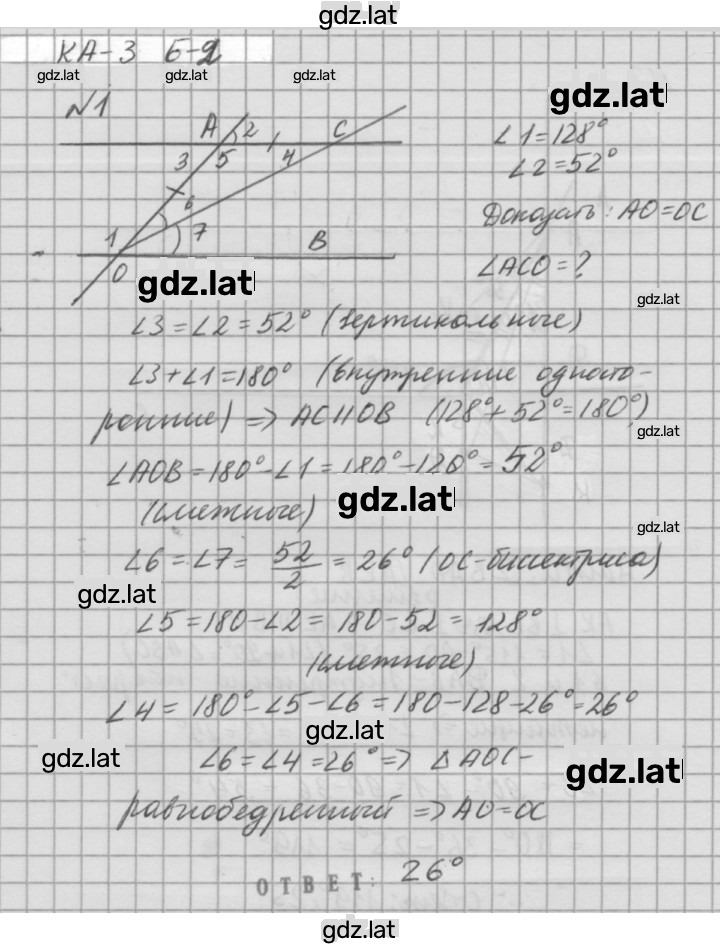 gdz.lat
КА-3 Б-2
gdz.lat gdz.lat gdz.lat
gdz.lat
№1
A 2 C
3 5 4
6
1 7 B
O
∠1=128°
∠2=52°
Доказать: AO=OC
∠ACO=?
gdz.lat
gdz.lat
∠3=∠2=52° (вертикальные)
∠3+∠1=180° (внутренние односто-
ронние) => AC||OB (128°+52°=180°)
gdz.lat
∠AOB=180°-∠1=180°-128°=52°
gdz.lat
(смежные)
gdz.lat
∠6=∠7= 52/2 = 26° (OC-биссектриса)
gdz.lat
∠5=180-∠2=180-52=128°
(смежные)
∠4= 180°-∠5-∠6=180-128-26°=26°
gdz.lat
gdz.lat
∠6=∠4=26° => △AOC-
gdz.lat
равнобедренный => AO=OC
ОТВЕТ: 26°
gdz.lat